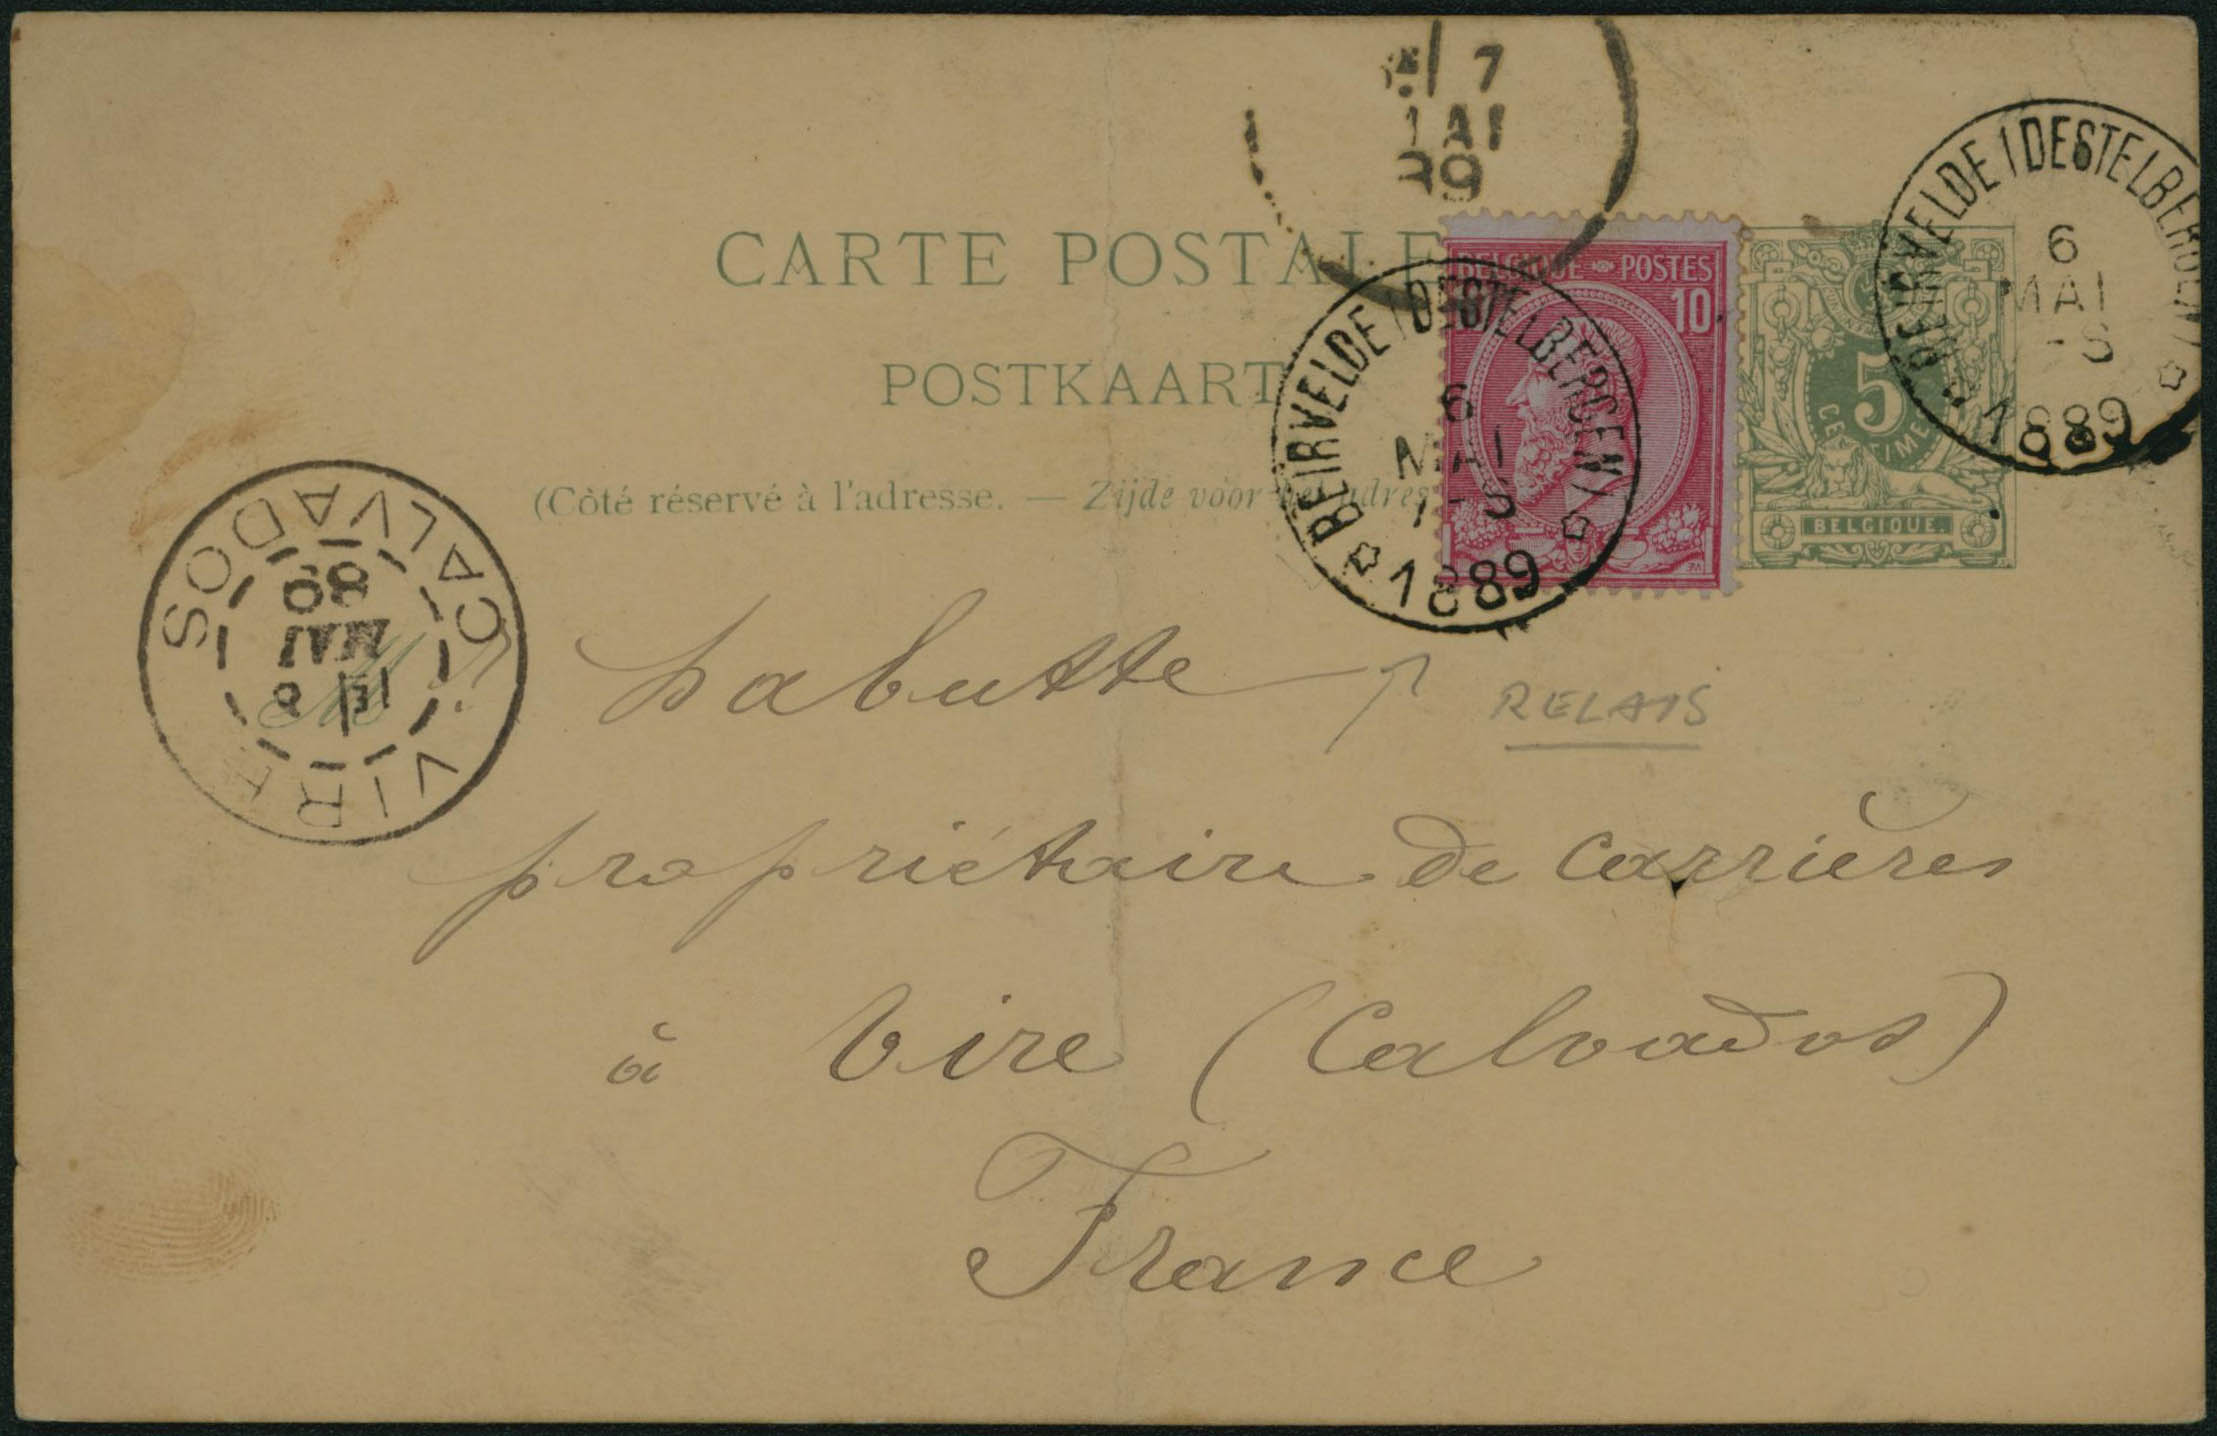 7
MAI
89
BEIRVELDE (DESTELBERGEN)
6
MAI
-S
1889
CARTE POSTALE
BELGIQUE POSTES
10
5
CENTIMES
BELGIQUE.
POSTKAART
BEIRVELDE (DESTELBERGEN)
6
MAI
7-S
1889
(Côté réservé à l'adresse. — Zijde voor het adres
VIRE
CALVADOS
8
MAI
89
M
Labutte
RELAIS
propriétaire de Carrières
à Vire (Calvados)
France